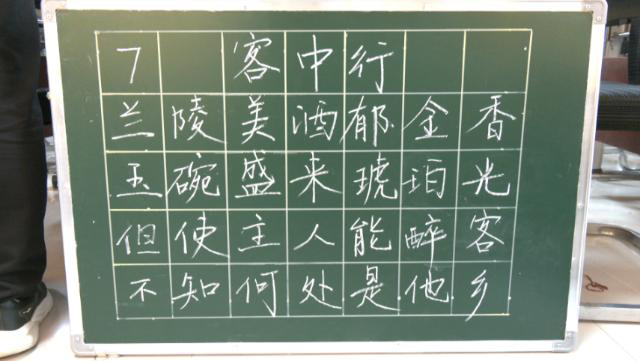 7 客中行
兰陵美酒郁金香
玉碗盛来琥珀光
但使主人能醉客
不知何处是他乡